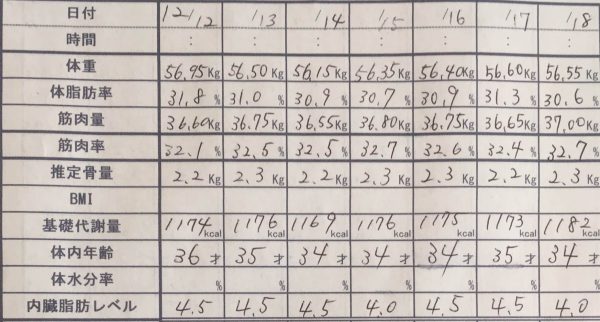 日付 12/12 /13 /14 /15 /16 /17 /18
時間 : : : : : : :
体重 56,95Kg 56,50Kg 56,15Kg 56,35Kg 56,40Kg 56,60Kg 56,55Kg
体脂肪率 31,8% 31.0% 30,9% 30,7% 30,9% 31.3% 30,6%
筋肉量 36,60Kg 36.75Kg 36,55Kg 36.80Kg 36,75Kg 36,65Kg 37,00Kg
筋肉率 32.1% 32,5% 32,5% 32.7% 32.6% 32.4% 32.7%
推定骨量 2.2Kg 2.3Kg 2.2Kg 2.3Kg 2.3Kg 2.2Kg 2.3Kg
BMI
基礎代謝量 1174kcal 1176kcal 1169kcal 1176kcal 1175kcal 1173kcal 1182kcal
体内年齢 36才 35才 34才 34才 34才 35才 34才
体水分率 % % % % % % %
内臓脂肪レベル 4.5 4.5 4.5 4.0 4.5 4.5 4.0